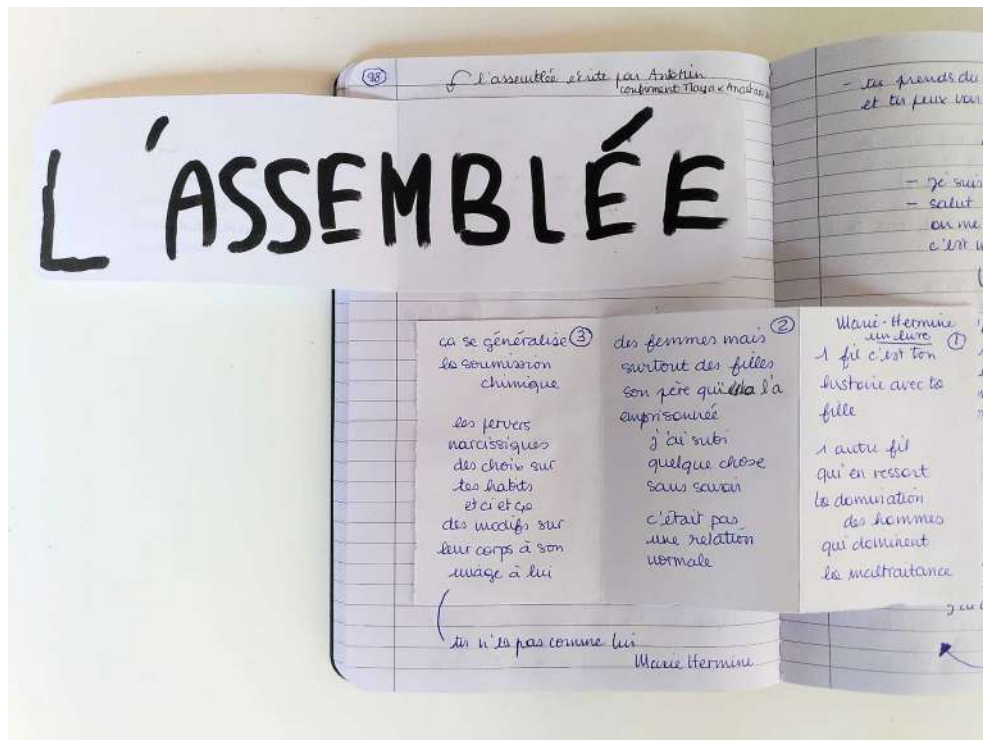 98
l'assemblée écrite par Antonin
confinement Maya & Anastasi
L'ASSEMBLÉE
ça se généralise 3
la soumission
chimique
les pervers
narcissiques
des choix sur
tes habits
et ci et ça
des modifs sur
leur corps à son
usage à lui
des femmes mais 2
surtout des filles
son père qui l'a
emprisonnée
j'ai subi
quelque chose
sans savoir
c'était pas
une relation
normale
Marie-Hermine
un livre 1
1 fil c'est ton
histoire avec ta
fille
1 autre fil
qui en ressort
la domination
des hommes
qui dominent
la maltraitance
tu n'es pas comme lui
Marie Hermine
- tu prends du
et tu peux voir
- je suis
- salut
on me
c'est